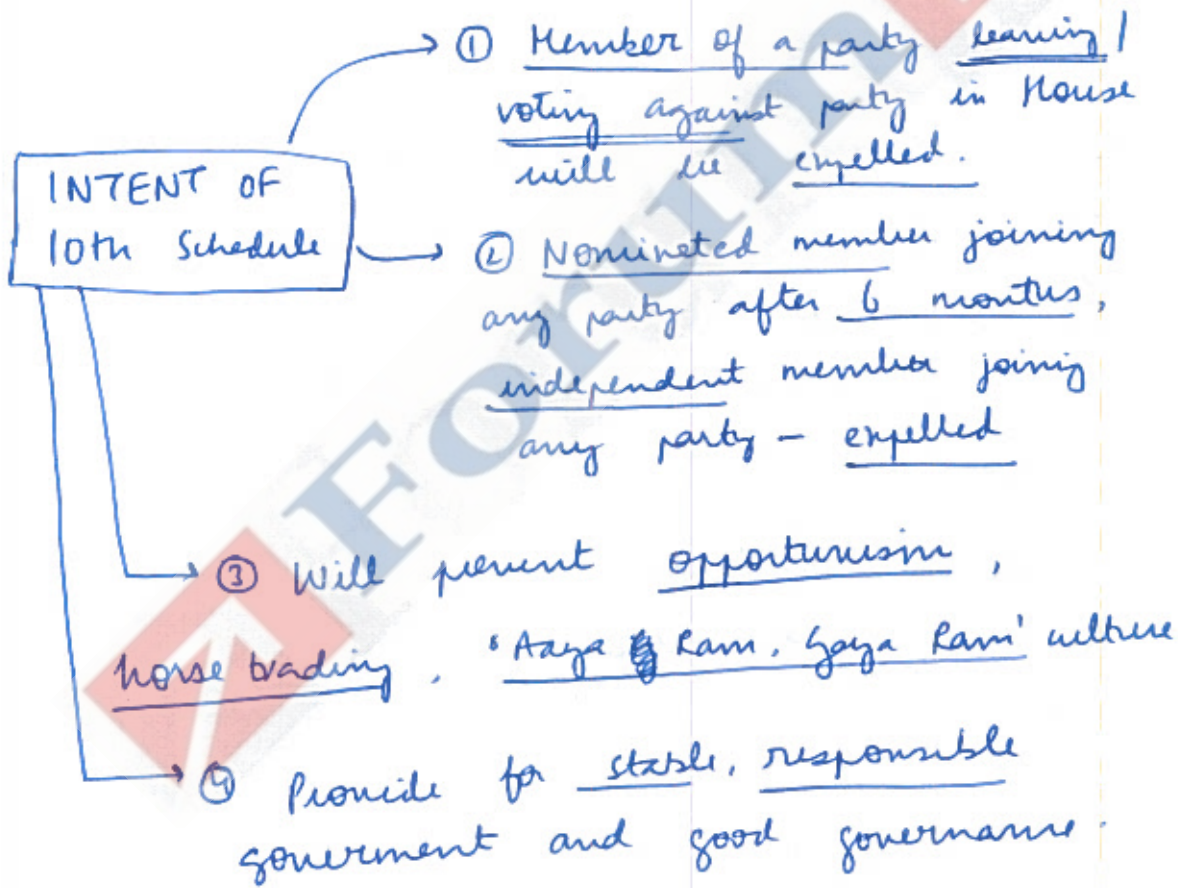 ① Member of a party leaving /
voting against party in House
will be expelled.
INTENT OF
10th Schedule
② Nominated member joining
any party after 6 months,
independent member joining
any party - expelled
③ Will prevent opportunism,
horse trading, 'Aaya Ram, Gaya Ram' culture
④ Provide for stable, responsible
government and good governance.
Forum